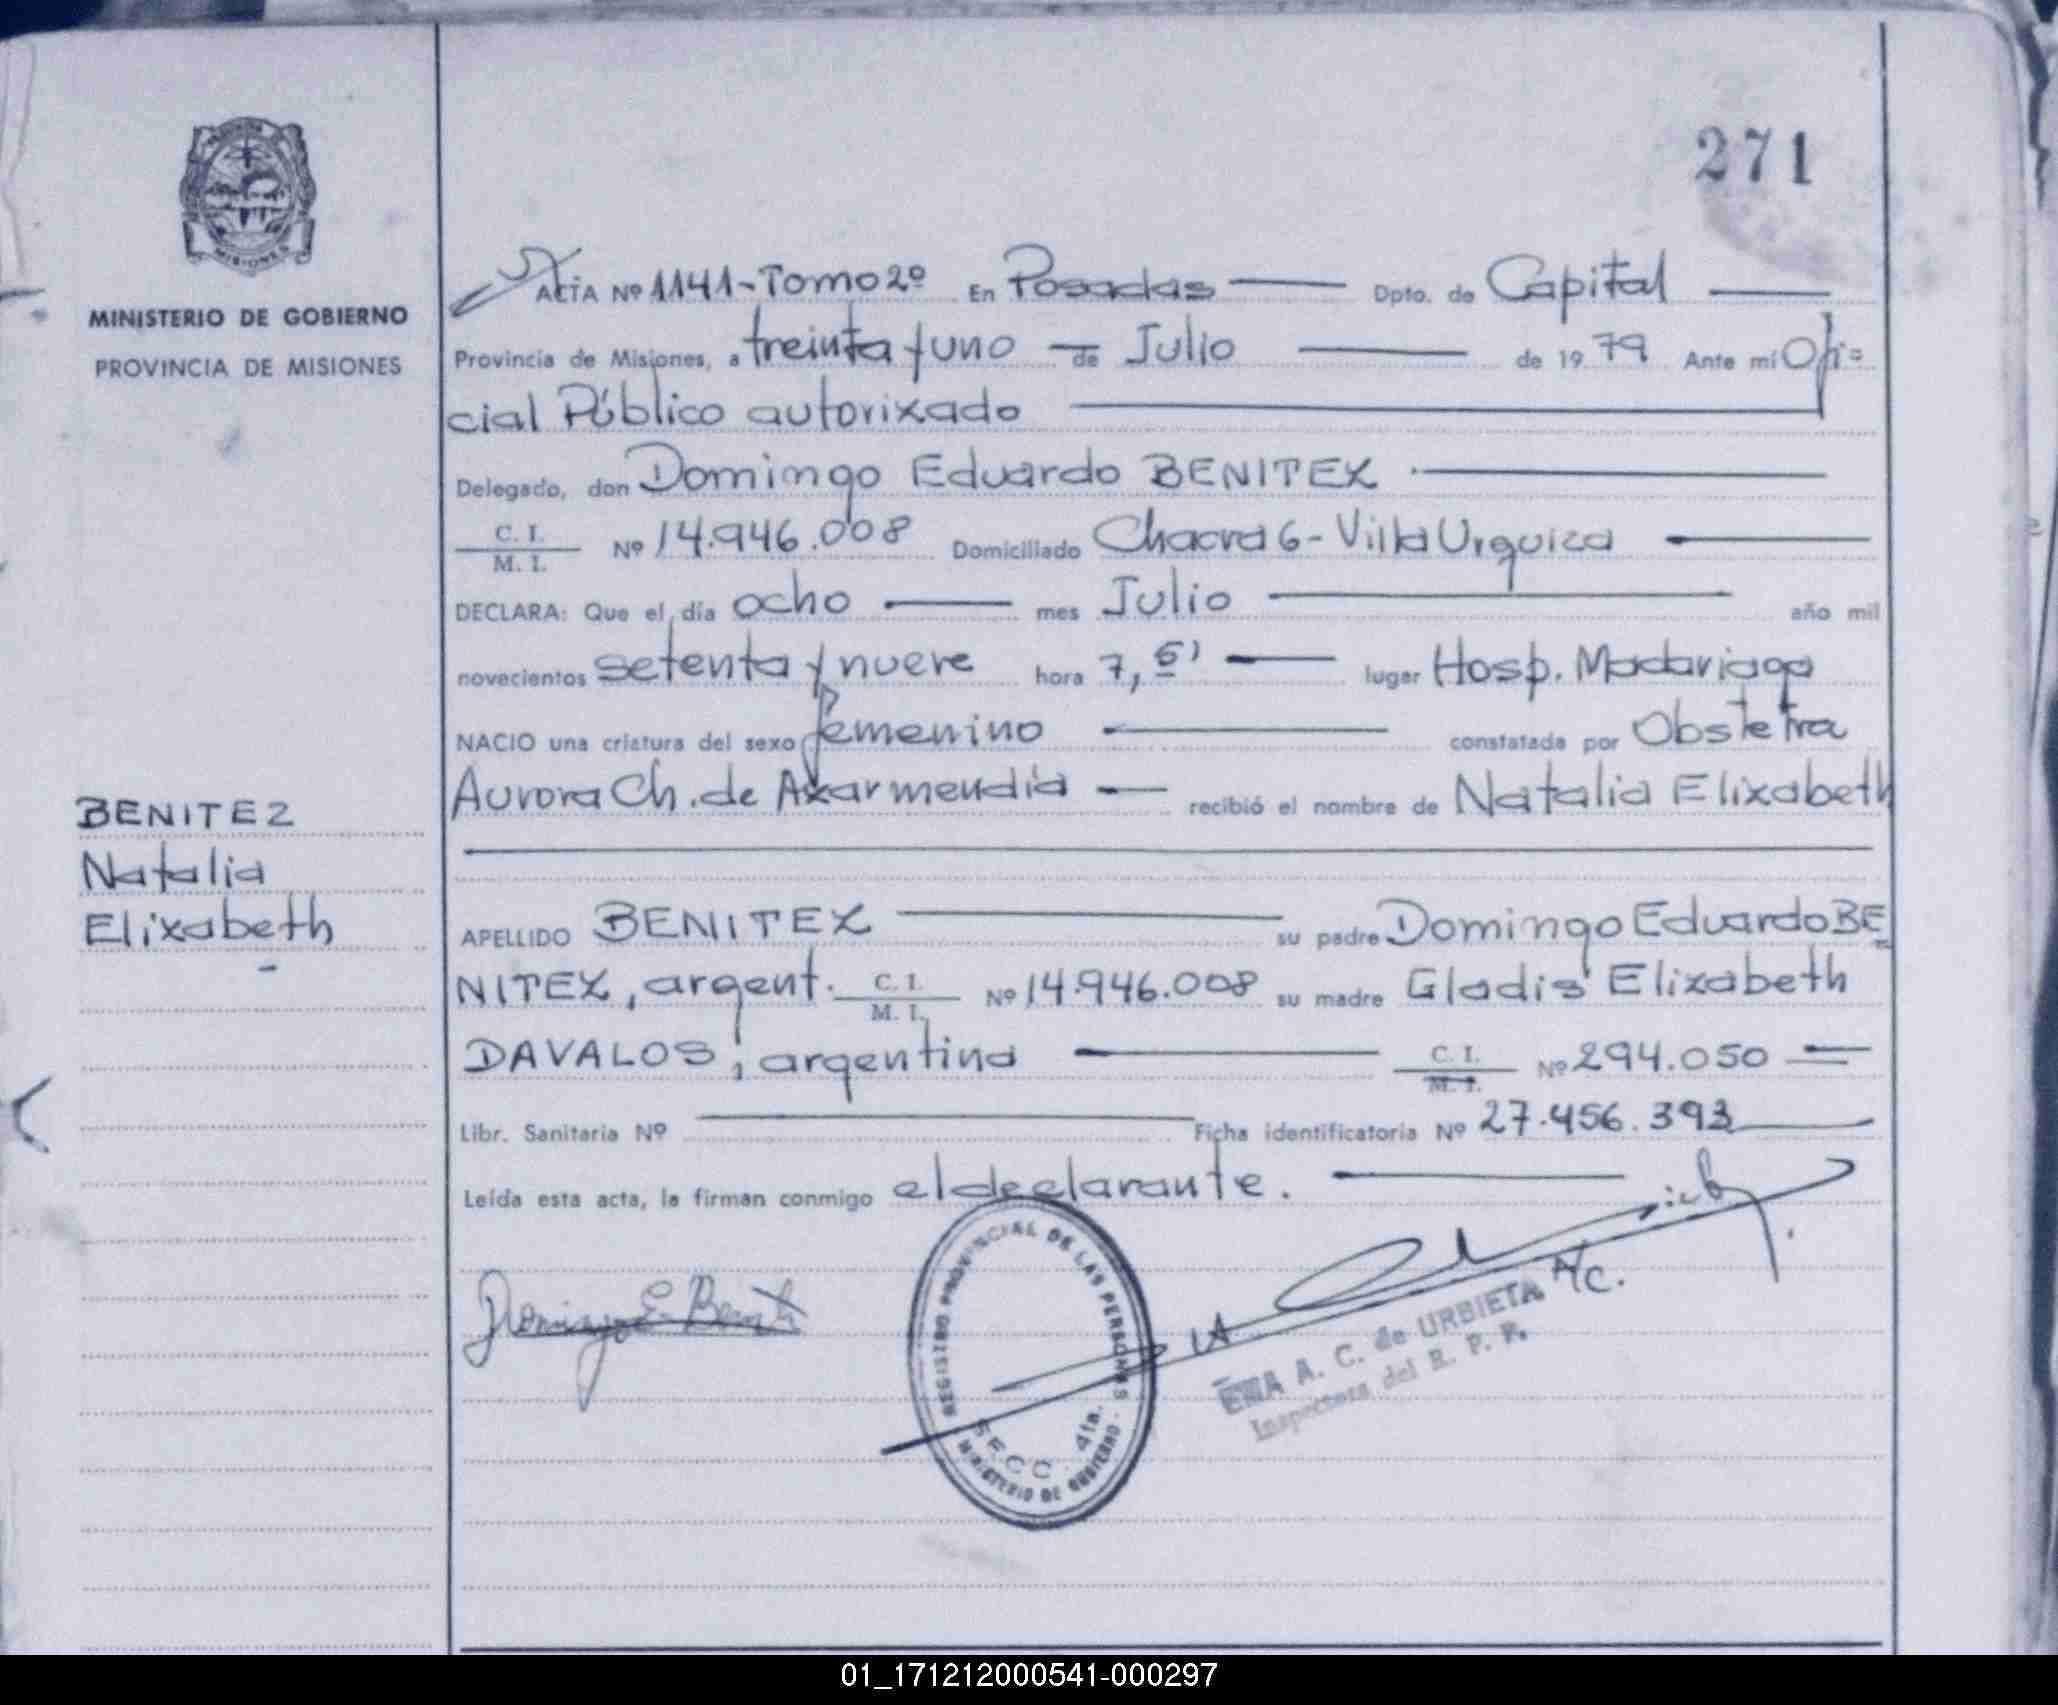 271
PROVINCIA DE
MISIONES
MINISTERIO DE GOBIERNO
PROVINCIA DE MISIONES
ACTA Nº 1141-Tomo 2º En Posadas Dpto. de Capital
Provincia de Misiones, a treinta y uno de Julio de 1979 Ante mí Ofi=
cial Público autorizado
Delegado, don Domingo Eduardo BENITEZ
C. I.
M. I. Nº 14.946.008 Domiciliado Chacra 6 - Villa Urquiza
DECLARA: Que el día ocho mes Julio año mil
novecientos setenta y nueve hora 7, lugar Hosp. Madariaga
NACIO una criatura del sexo femenino constatada por Obstetra
Aurora Ch. de Azarmendia recibió el nombre de Natalia Elizabeth
BENITEZ
Natalia
Elizabeth
APELLIDO BENITEZ su padre Domingo Eduardo BE
NITEZ, argent. C. I.
M. I. Nº 14.946.008 su madre Gladis Elizabeth
DAVALOS, argentina C. I.
M. I. Nº 294.050
Libr. Sanitaria Nº Ficha identificatoria Nº 27.456.393
Leída esta acta, la firman conmigo el declarante.
Domingo E. Benitez
REGISTRO PROVINCIAL DE LAS PERSONAS
SECC. 4ta.
MINISTERIO DE GOBIERNO
A/C.
EMA A. C. de URBIETA
Inspectora del R. P. P.
01_171212000541-000297